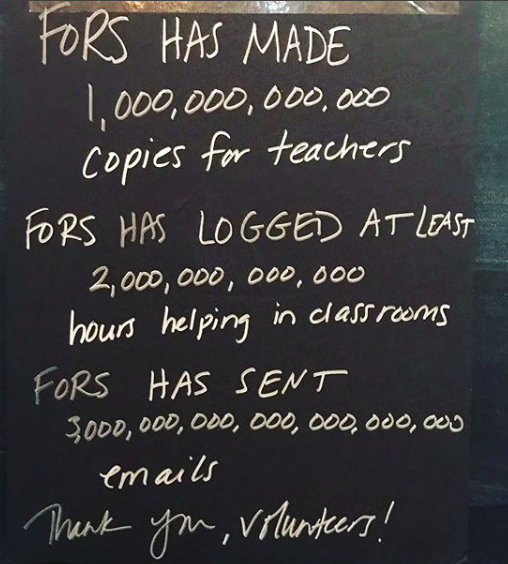 FORS HAS MADE
1,000,000,000,000
copies for teachers
FORS HAS LOGGED AT LEAST
2,000,000,000,000
hours helping in classrooms
FORS HAS SENT
3,000,000,000,000,000,000,000
emails
Thank you, volunteers!